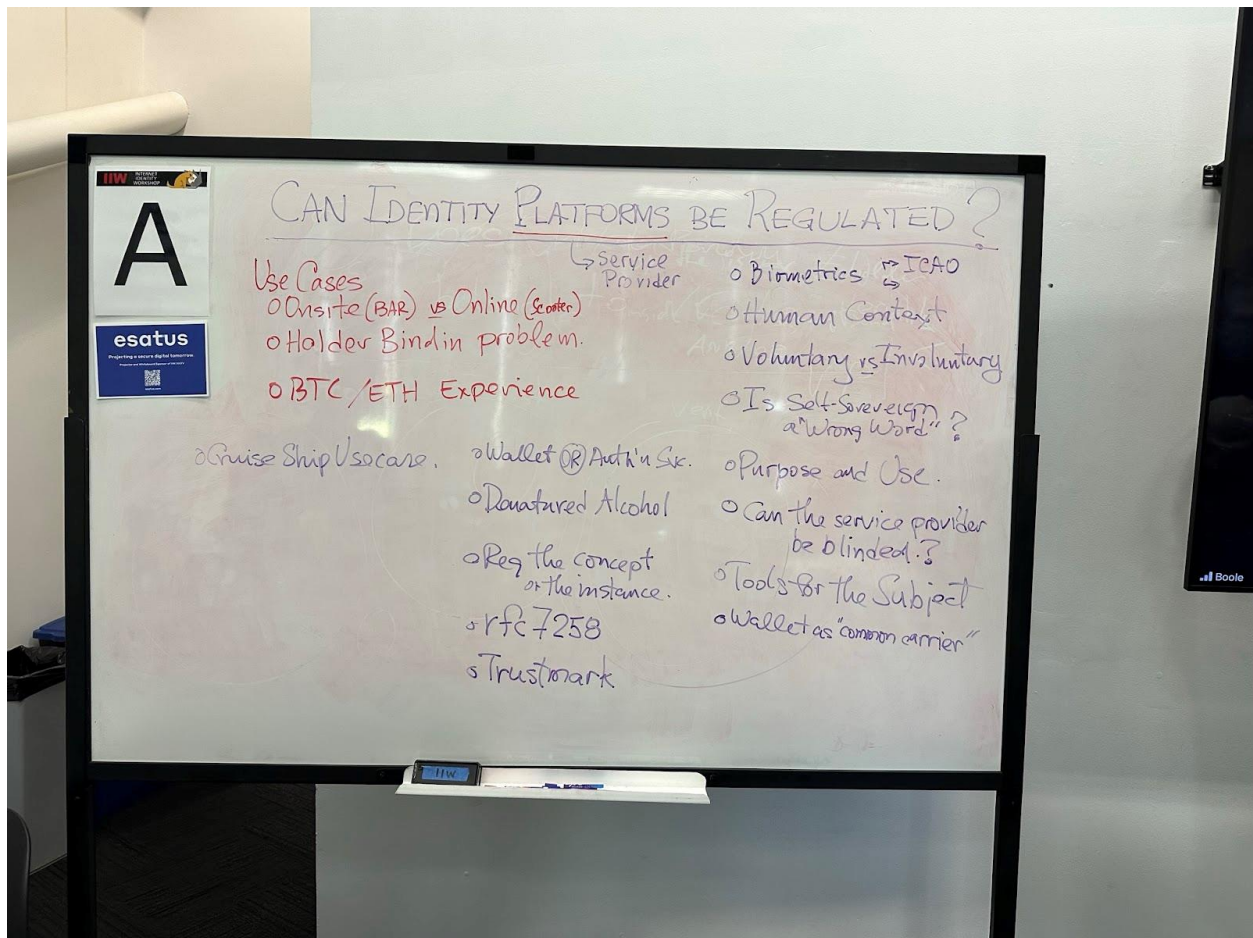 IIW INTERNET IDENTITY WORKSHOP
A
esatus
Projecting a secure digital tomorrow.
CAN IDENTITY PLATFORMS BE REGULATED?
↳ Service
Provider
Use Cases
o Onsite (BAR) vs Online (Scooter)
o Holder Bindin problem.
o BTC / ETH Experience
o Cruise Ship Usecase.
o Wallet OR Auth'n Svc.
o Denatured Alcohol
o Reg the concept
or the instance.
o rfc 7258
o Trustmark
o Biometrics → ICAO
o Human Context
o Voluntary vs Involuntary
o Is Self-Sovereign
a "Wrong Word" ?
o Purpose and Use.
o Can the service provider
be blinded.?
o Tools for the Subject
o Wallet as "common carrier"
IIW
Boole